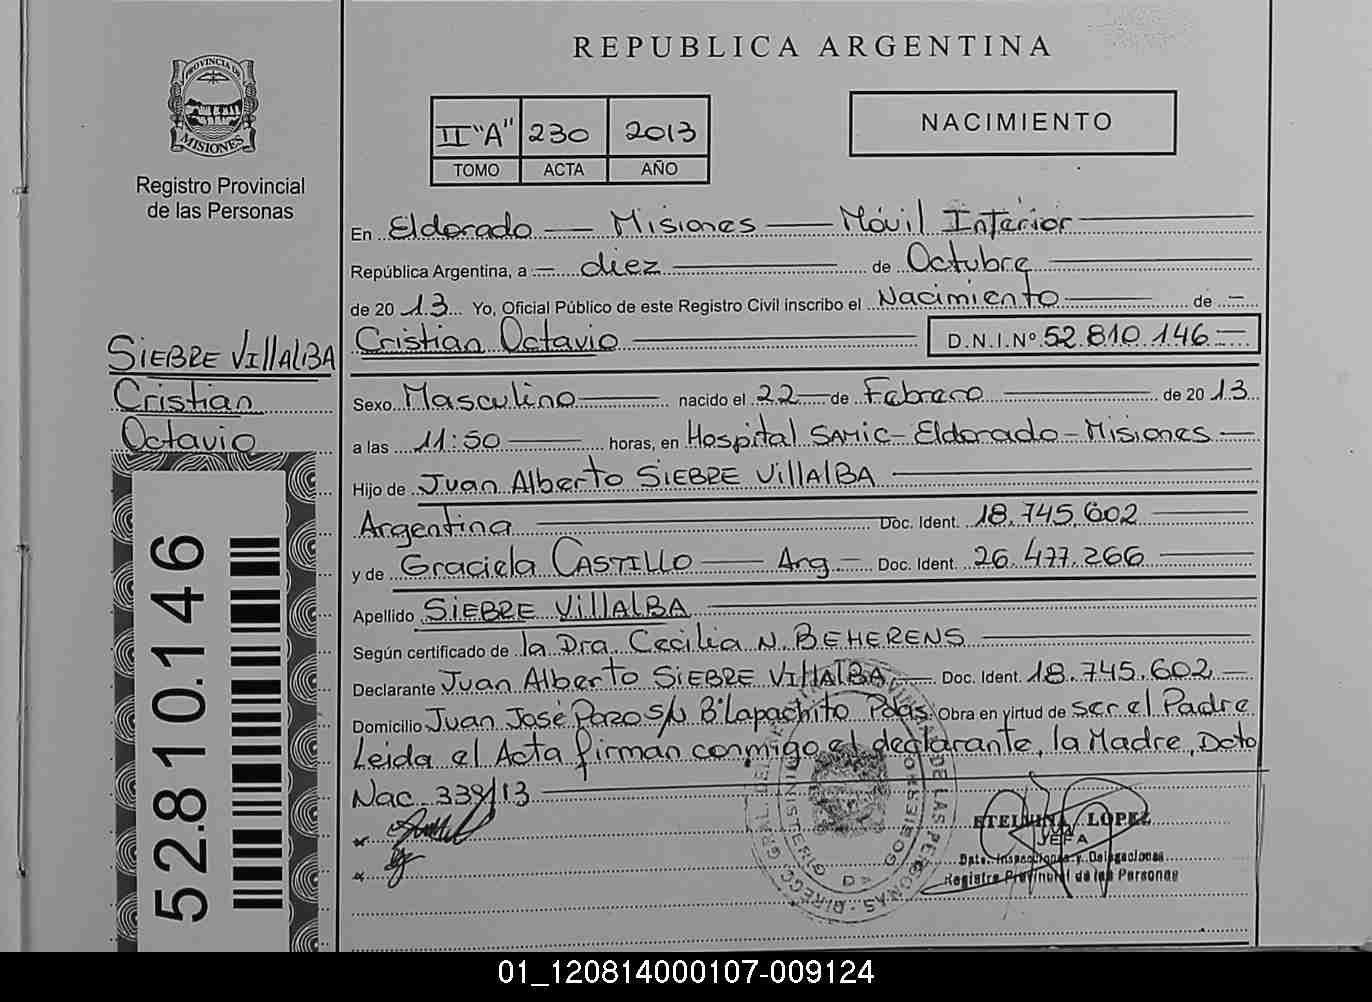 REPUBLICA ARGENTINA
PROVINCIA DE
MISIONES
Registro Provincial
de las Personas
II "A" 230 2013
TOMO ACTA AÑO
NACIMIENTO
En Eldorado — Misiones — Móvil Interior
República Argentina, a — diez — de Octubre
de 2013. Yo, Oficial Público de este Registro Civil inscribo el Nacimiento — de —
Cristian Octavio — D.N.I.Nº 52.810.146 —
SIEBRE VILLALBA
Cristian
Octavio
52.810.146
Sexo Masculino — nacido el 22 — de Febrero — de 2013
a las 11:50 — horas, en Hospital SAMIC - Eldorado - Misiones —
Hijo de Juan Alberto SIEBRE VILLALBA —
Argentina — Doc. Ident. 18.745.602 —
y de Graciela CASTILLO — Arg — Doc. Ident. 26.477.266 —
Apellido SIEBRE VILLALBA —
Según certificado de la Dra Cecilia N. BEHERENS —
Declarante Juan Alberto SIEBRE VILLALBA — Doc. Ident. 18.745.602 —
Domicilio Juan José Pozo S/N Bº Lapachito Pdas. Obra en virtud de ser el Padre
Leida el Acta firman conmigo el declarante, la Madre, Dcto
Nac 339/13 —
ETELVINA LOPEZ
JEFA
Dpto. Inspecciones y Delegaciones
Registro Provincial de las Personas
01_120814000107-009124